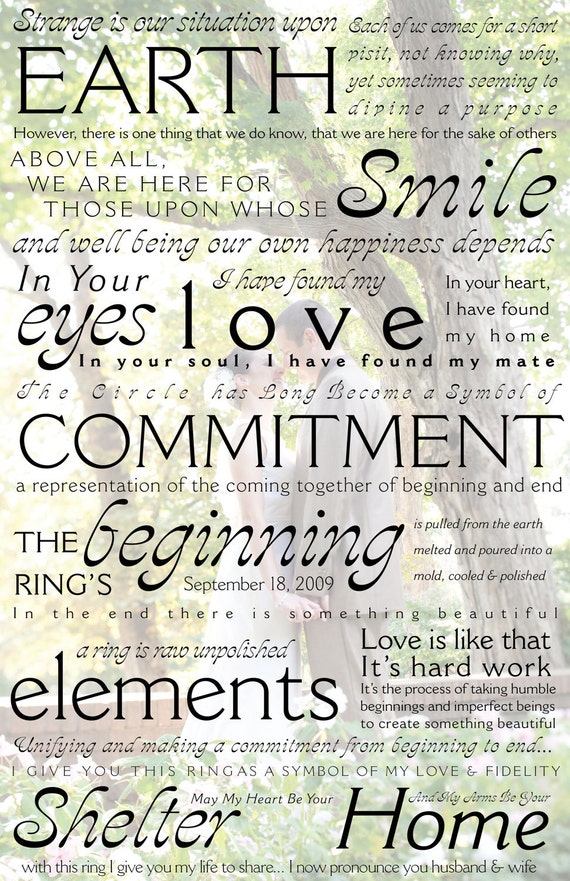 Strange is our situation upon
EARTH
Each of us comes for a short
visit, not knowing why,
yet sometimes seeming to
divine a purpose
However, there is one thing that we do know, that we are here for the sake of others
ABOVE ALL,
WE ARE HERE FOR
THOSE UPON WHOSE
Smile
and well being our own happiness depends
In Your
eyes
I have found my
love
In your heart,
I have found
my home
In your soul, I have found my mate
The Circle has Long Become a Symbol of
COMMITMENT
a representation of the coming together of beginning and end
THE
RING'S
beginning
September 18, 2009
is pulled from the earth
melted and poured into a
mold, cooled & polished
In the end there is something beautiful
a ring is raw unpolished
elements
Love is like that
It's hard work
It's the process of taking humble
beginnings and imperfect beings
to create something beautiful
Unifying and making a commitment from beginning to end...
I GIVE YOU THIS RINGAS A SYMBOL OF MY LOVE & FIDELITY
May My Heart Be Your
Shelter
And My Arms Be Your
Home
with this ring I give you my life to share... I now pronounce you husband & wife